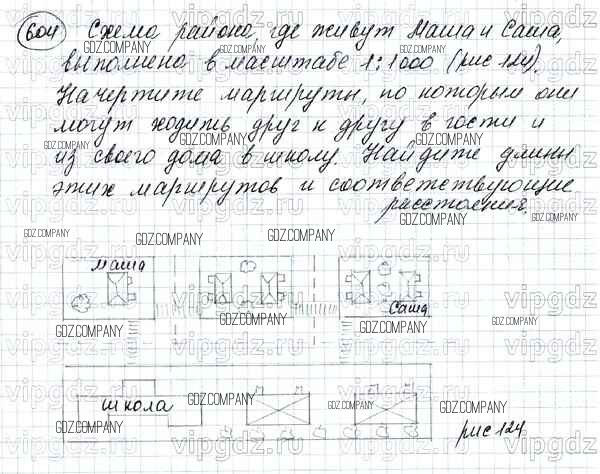 604 Схема района, где живут Маша и Саша,
выполнена в масштабе 1:1000 (рис 124).
Начертите маршруты, по которым они
могут ходить друг к другу в гости и
из своего дома в школу. Найдите длины
этих маршрутов и соответствующие
расстояния.
Маша
Саша
школа
рис 124
GDZ.COMPANY
vipgdz.ru